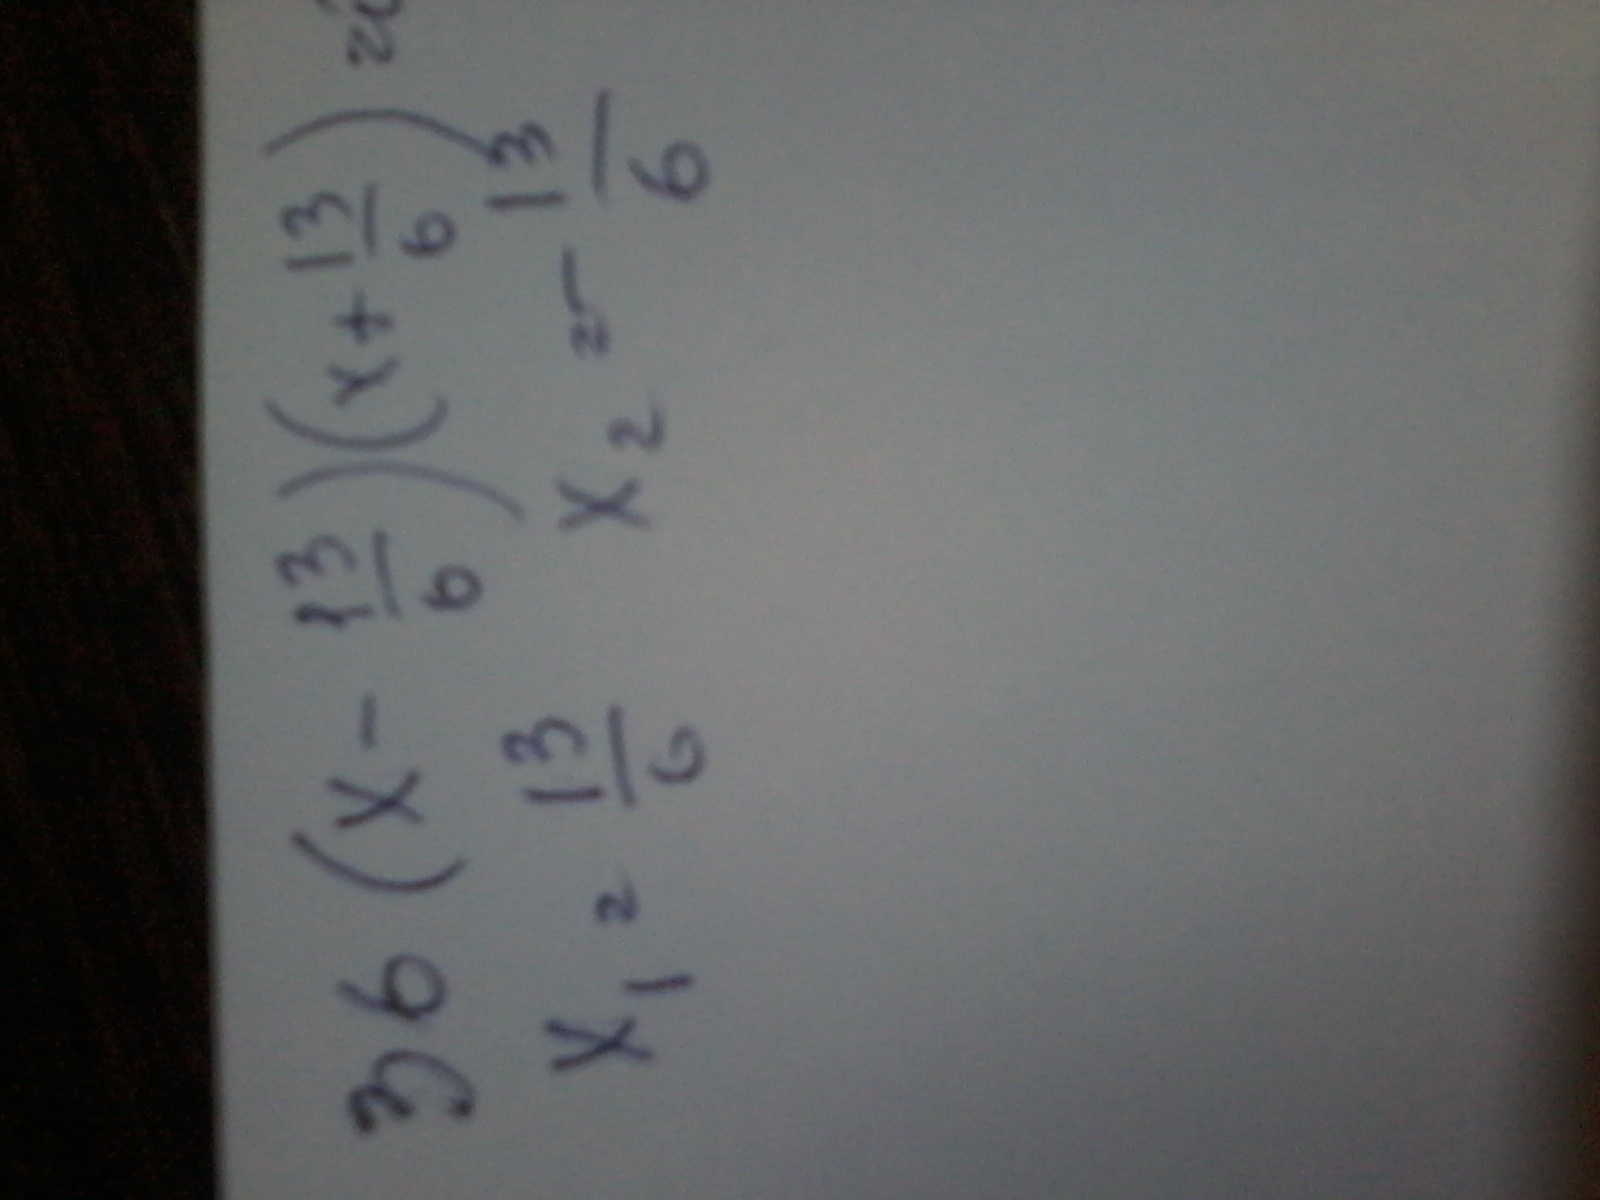 36 (x - 13/6)(x + 13/6) = 0
x₁ = 13/6 x₂ = - 13/6